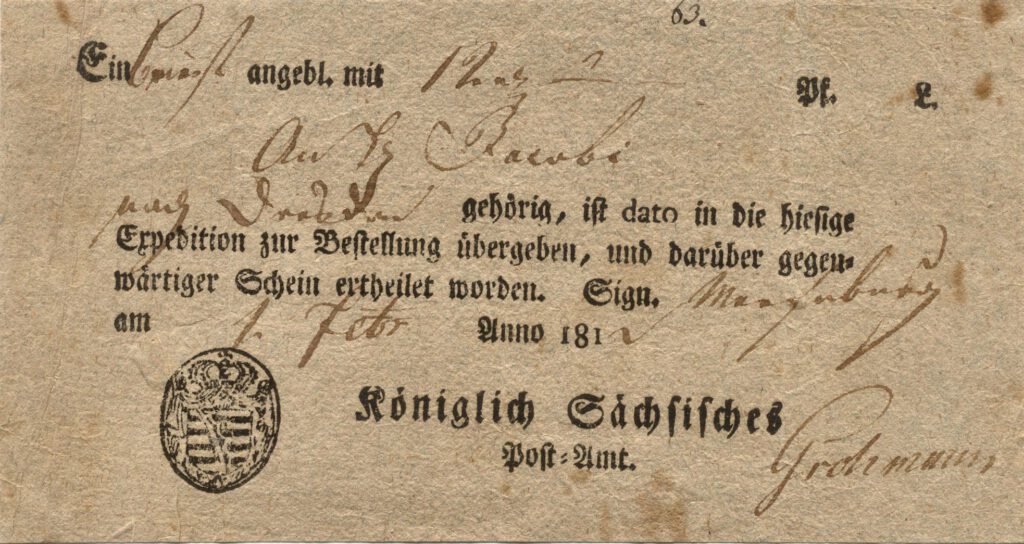 63.
Ein Brief angebl. mit Pf. L.
An Jacobi
nach Dresden gehörig, ist dato in die hiesige
Expedition zur Bestellung übergeben, und darüber gegen-
wärtiger Schein ertheilet worden. Sign. Merseburg
am Febr Anno 1812
Königlich Sächsisches
Post-Amt. Grohmann